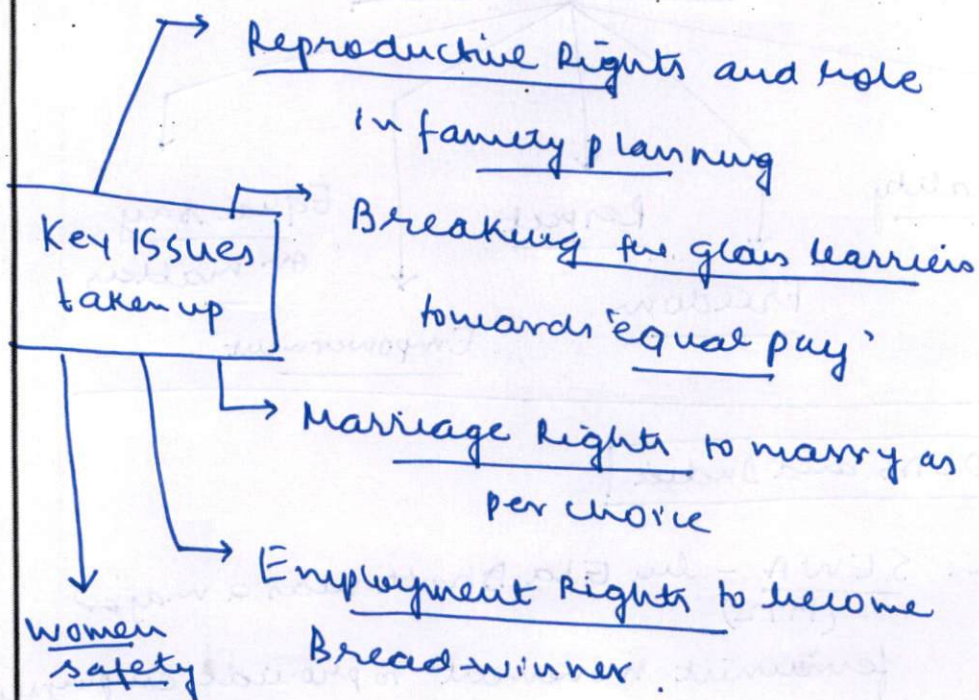 Reproductive Rights and role
in family planning
Key Issues
taken up
Breaking the glass barriers
towards 'equal pay'
Marriage Rights to marry as
per choice
Employment Rights to become
Bread-winner.
Women
safety